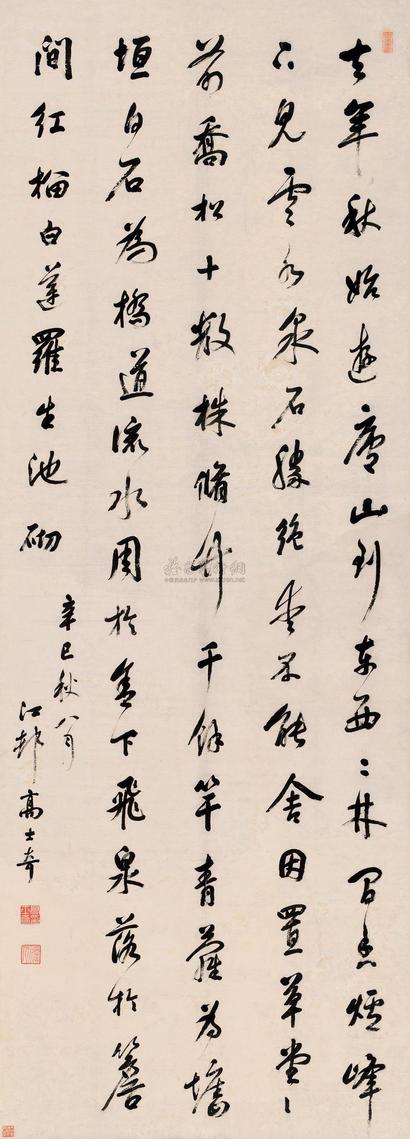 去年秋始遊廬山到東西二林間香爐峰
下見雲水泉石勝絕愛不能舍因置草堂〻
前喬松十數株脩竹千餘竿青蘿為墻
垣白石為橋道流水周於舍下飛泉落於簷
間紅榴白蓮羅生池砌
辛巳秋八月
江邨高士奇